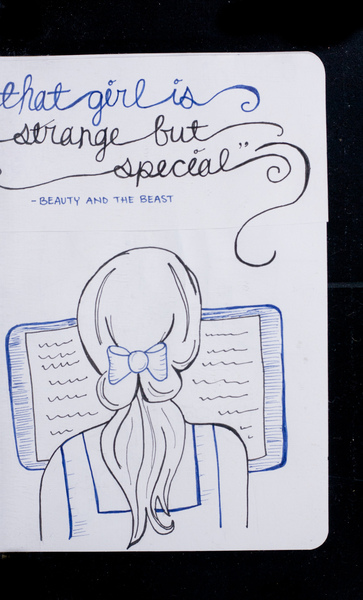 that girl is
strange but
special"
- BEAUTY AND THE BEAST